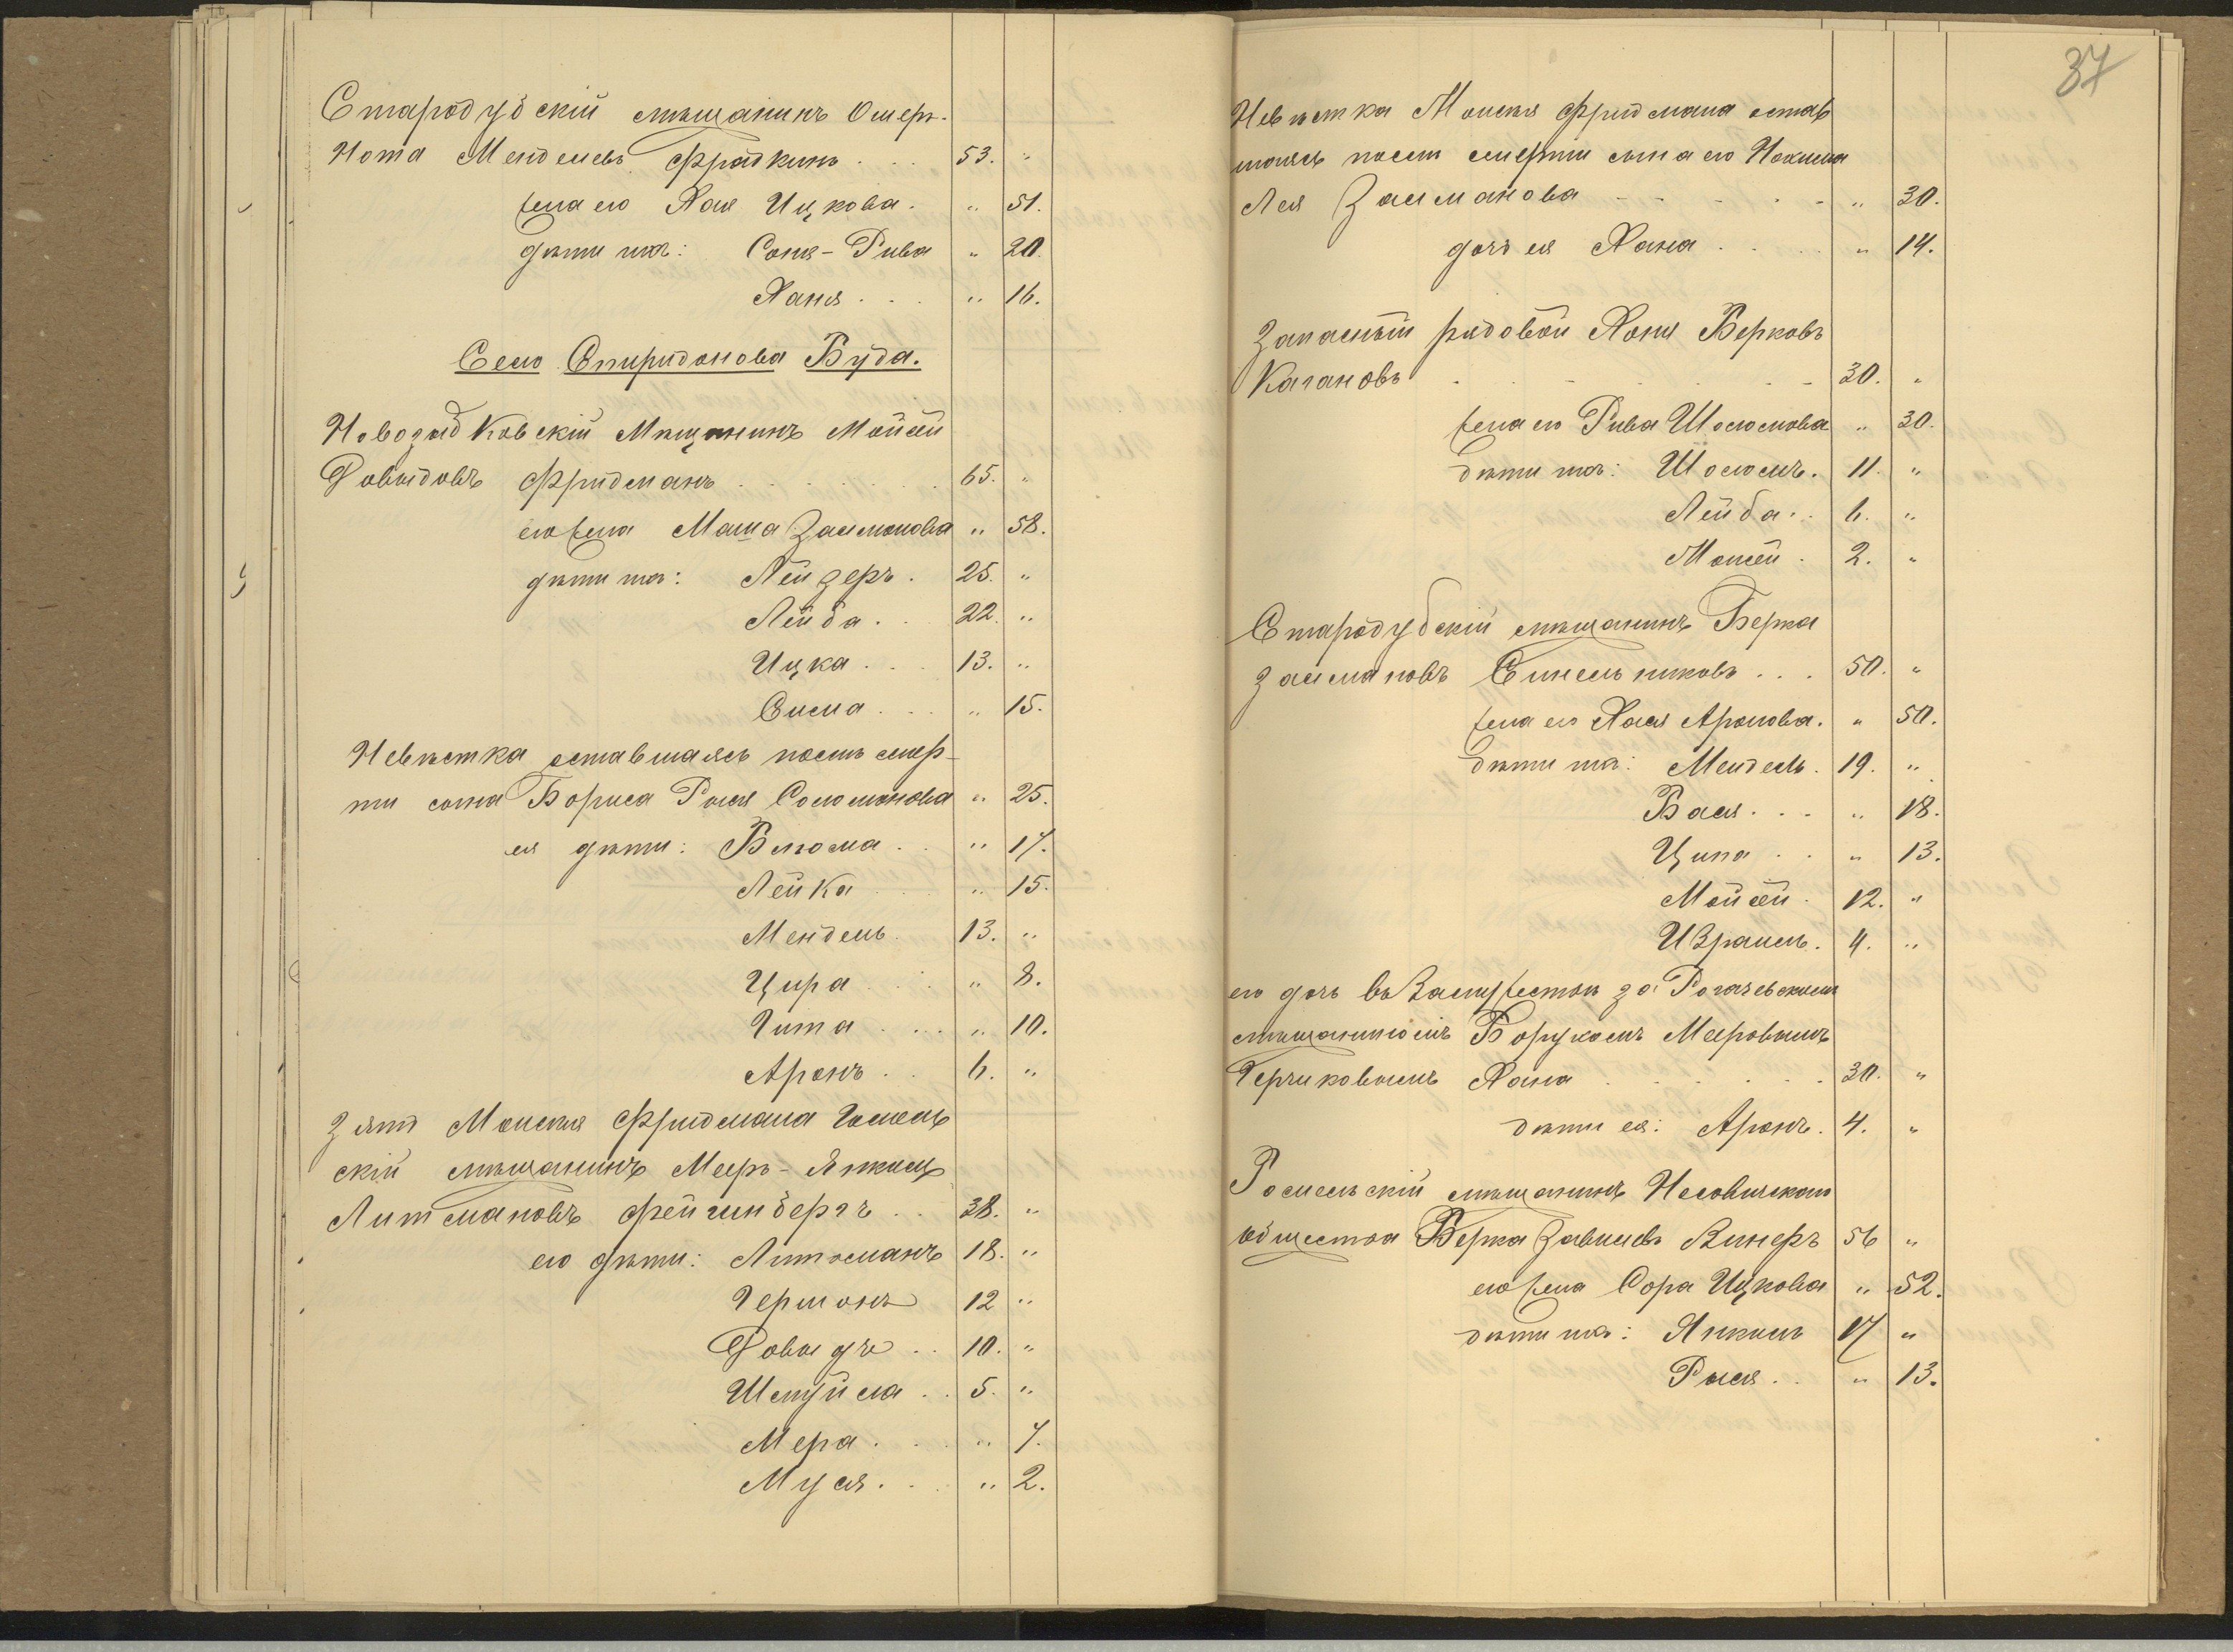 Стародубскій мѣщанинъ Ошеръ-
Нота Менделевъ Фрадкинъ . . . 53. "
жена его Хая Ицкова. " 51.
дѣти ихъ: Соня-Рива " 20.
Ханя . . . " 16.
Село Спиридонова Буда.
Новозыбковскій Мѣщанинъ Мойсей
Довыдовъ Фридманъ . . . . . . . 65. "
его жена Маша Залмонова " 58.
дѣти ихъ: Лейзеръ . 25. "
Лейба . . 22. "
Ицка . . . 13. "
Сима . . . " 15.
Невѣстка оставшаясь послѣ смер-
ти сына Бориса Рися Соломонова " 25.
ея дѣти: Влюма . . " 17.
Лейка . . " 15.
Мендель. 13. "
Цира . . . " 8.
Гита . . . " 10.
Аронъ . . 6. "
Зять Моисея Фридмана Гомель
скій мѣщанинъ Меръ-Янкель
Литмановъ Фейгинбергъ . . 38. "
его дѣти: Литманъ 18. "
Гершонъ 12 "
Довыдъ . . 10. "
Шмуйла . . 5. "
Мера . . . " 7.
Муся . . . " 2.
37
Невѣстка Моисея Фридмана остав
шаясь послѣ смерти сына его Нохима
Лея Залманова - - - - - - " 30.
дочь ея Хана . . . . " 14.
Запасный рядовой Хоня Берковъ
Кагановъ . - - - - - 30. "
жена его Рива Шоломова " 30.
дѣти ихъ: Шоломъ. 11. "
Лейба . . 6. "
Мовсей . 2. "
Стародубскій мѣщанинъ Берка
Залмановъ Синельниковъ . . . 50. "
жена его Хася Аронова. " 50.
дѣти ихъ: Мендель. 19. "
Бася . . . " 18.
Ципа . . " 13.
Мойсей . 12. "
Израиль. 4. "
его дочь въ Замужествѣ за Рогачевскимъ
мѣщаниномъ Борухомъ Меровымъ
Герчиковымъ Хана . . . . . . 30. "
дѣти ея: Аронъ. 4. "
Гомельскій мѣщанинъ
общества Берка Завелевъ Винеръ 56 "
его жена Сора Ицкова " 52.
дѣти ихъ: Янкель 17 "
Рися . . " 13.